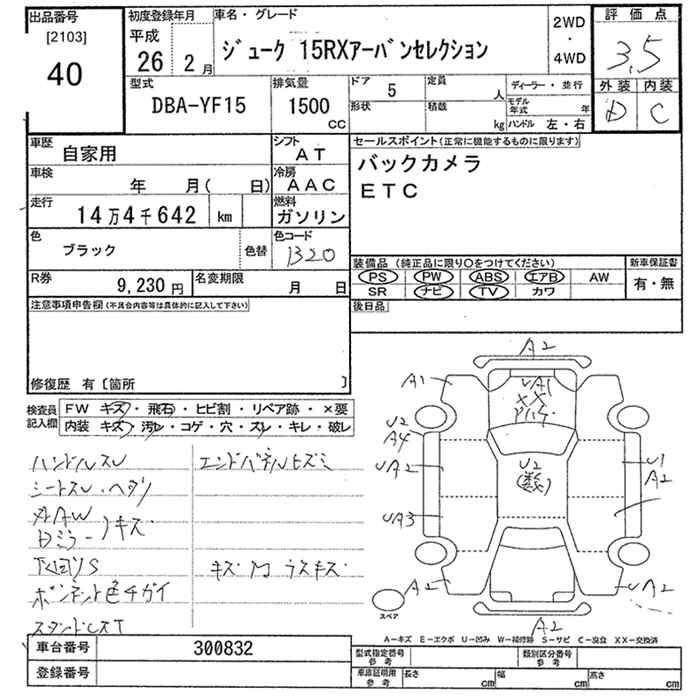 出品番号
[2103]
40
初度登録年月
平成
26 2 月
車名・グレード
ジューク 15RXアーバンセレクション
2WD
・
4WD
評価点
3,5
外装 内装
D C
型式
DBA-YF15
排気量
1500
CC
ドア 5
定員 人
形状
積載 kg
ディーラー・並行
モデル年式 年
ハンドル 左・右
車歴
自家用
シフト
AT
車検
年 月( 日)
冷房
AAC
走行
14万4千642 km
燃料
ガソリン
色
ブラック
色替
色コード
B20
R券
9,230 円
名変期限
月 日
セールスポイント(正常に機能するものに限ります)
バックカメラ
ETC
装備品 (純正品に限り○をつけてください)
PS PW ABS エアB AW
SR ナビ TV カワ
新車保証書
有・無
後日品
注意事項申告欄(不具合内容等は具体的に記入して下さい)
修復歴 有〔箇所 〕
検査員記入欄
FW キズ・飛石・ヒビ割・リペア跡・×要
内装 キズ・汚レ・コゲ・穴・スレ・キレ・破レ
ハンドルスレ
シートスレ・ヘタリ
社外AW
Dミラーキズ
下回りS
ボンネット色チガイ
エンドパネルヒズミ
キズ 凹 ウスキズ
A2
A1
UA1
XX
U2
A4
UA2
UA3
A2
U2
(数)
U1
A2
UA2
A2
スペア
A-キズ E-エクボ U-凹み W-補修跡 S-サビ C-腐食 XX-交換済
車台番号 300832
登録番号
型式指定番号 参考
類別区分番号 参考
車庫証明用 参考
長さ cm
幅 cm
高さ cm